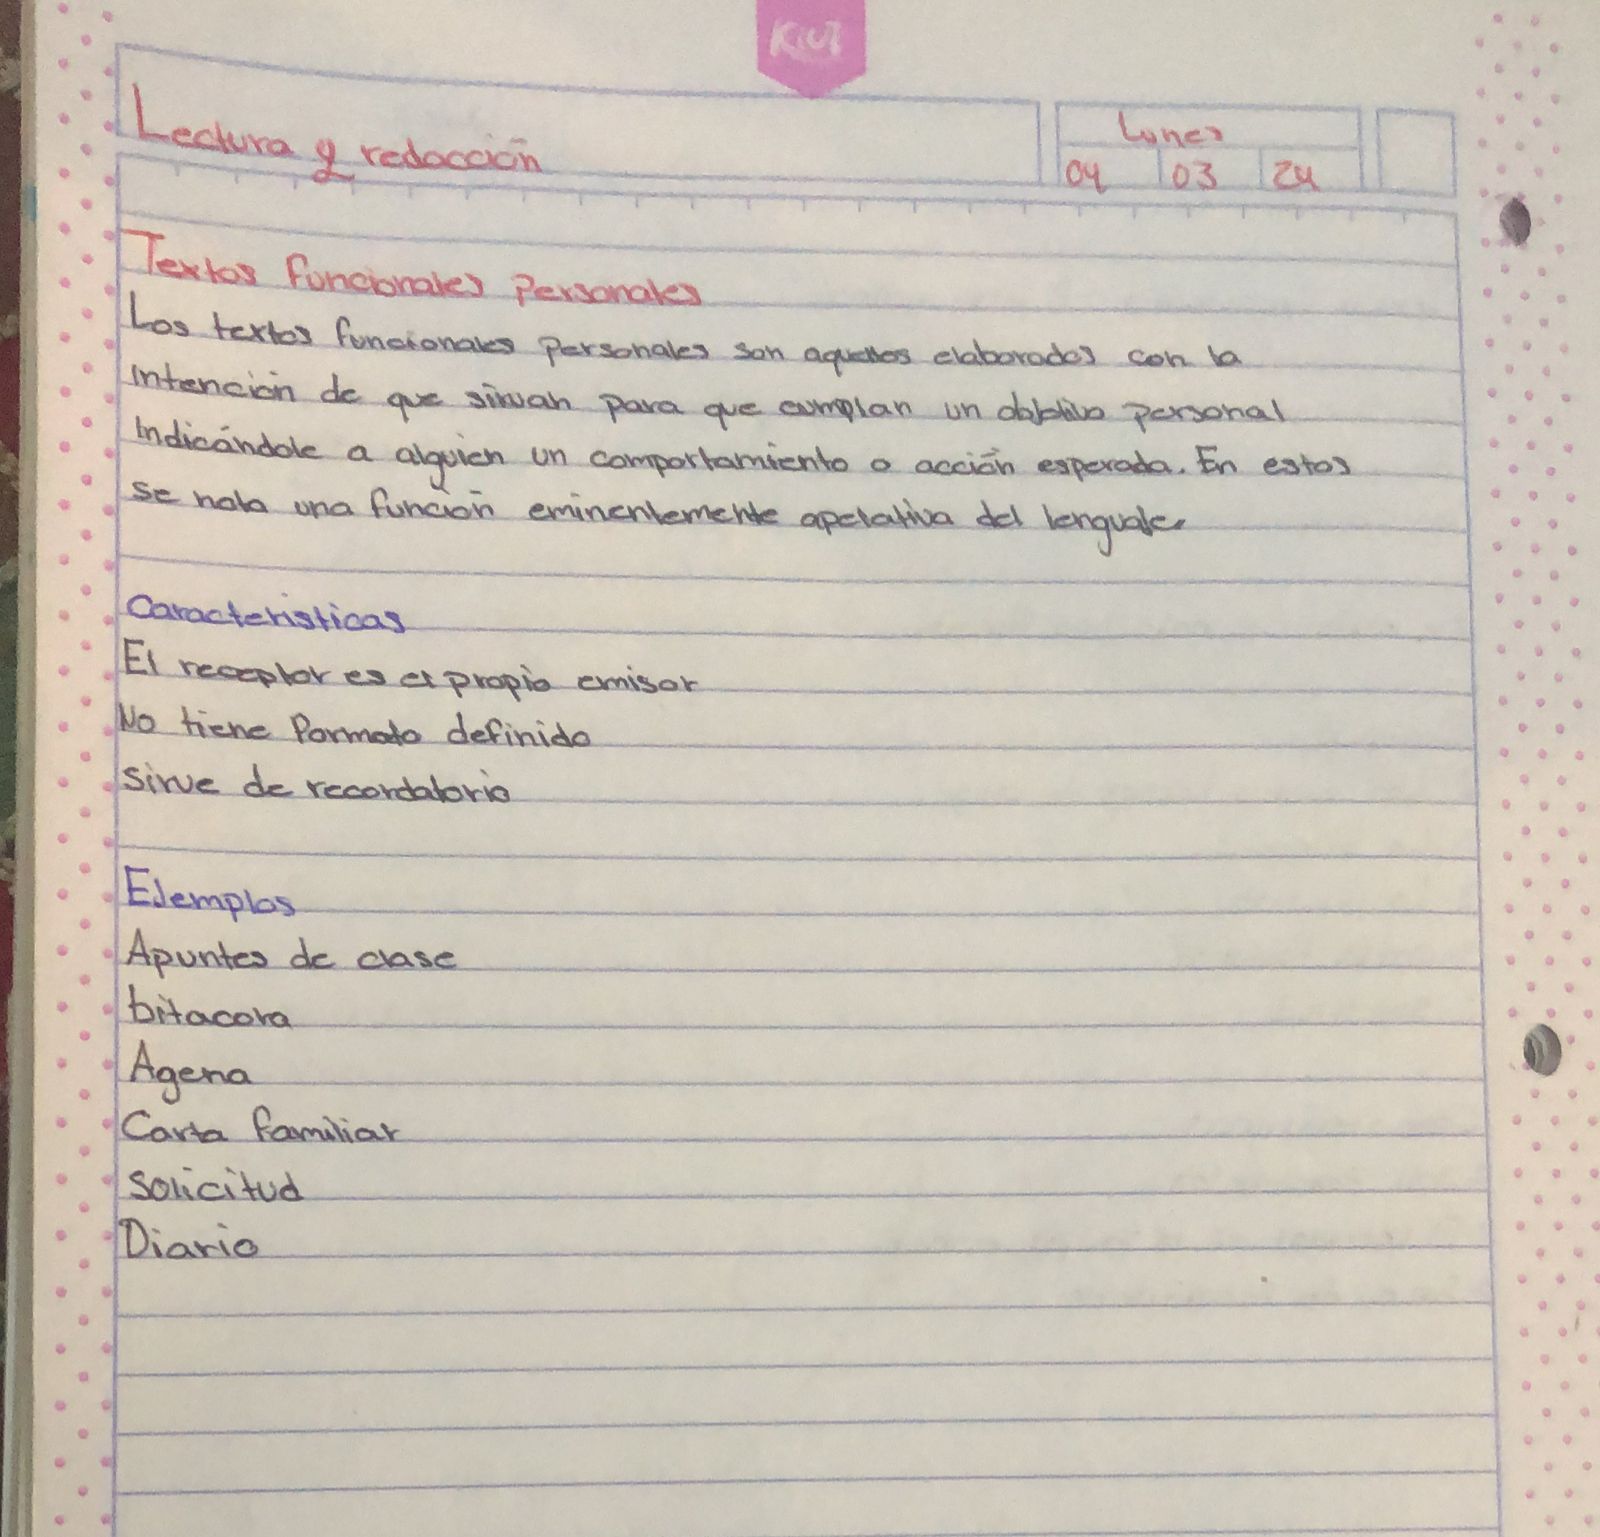 Kiut
Lectura y redacción
Lunes
04 03 24
Textos funcionales personales
Los textos funcionales personales son aquellos elaborados con la
intención de que sirvan para que cumplan un objetivo personal
indicándole a alguien un comportamiento o acción esperada. En estos
se nota una función eminentemente apelativa del lenguaje
Características
El receptor es el propio emisor
No tiene formato definido
Sirve de recordatorio
Ejemplos
Apuntes de clase
bitacora
Agena
Carta familiar
Solicitud
Diario